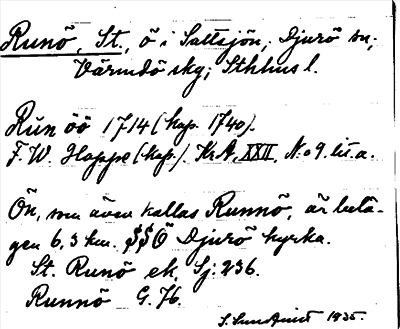 Runö, St., ö i Saltsjön, Djurö sn,
Värmdö skg; Sthlms l.
Run öö 1714 (kop. 1740).
F. W. Hoppe (kop.). KrA, XXII, N:o 9. lit. a.
Ön, som även kallas Runnö, är belä-
gen 6,3 km. SSÖ Djurö kyrka.
St. Runö ek. Sj: 236.
Runnö G. 76.
1935.